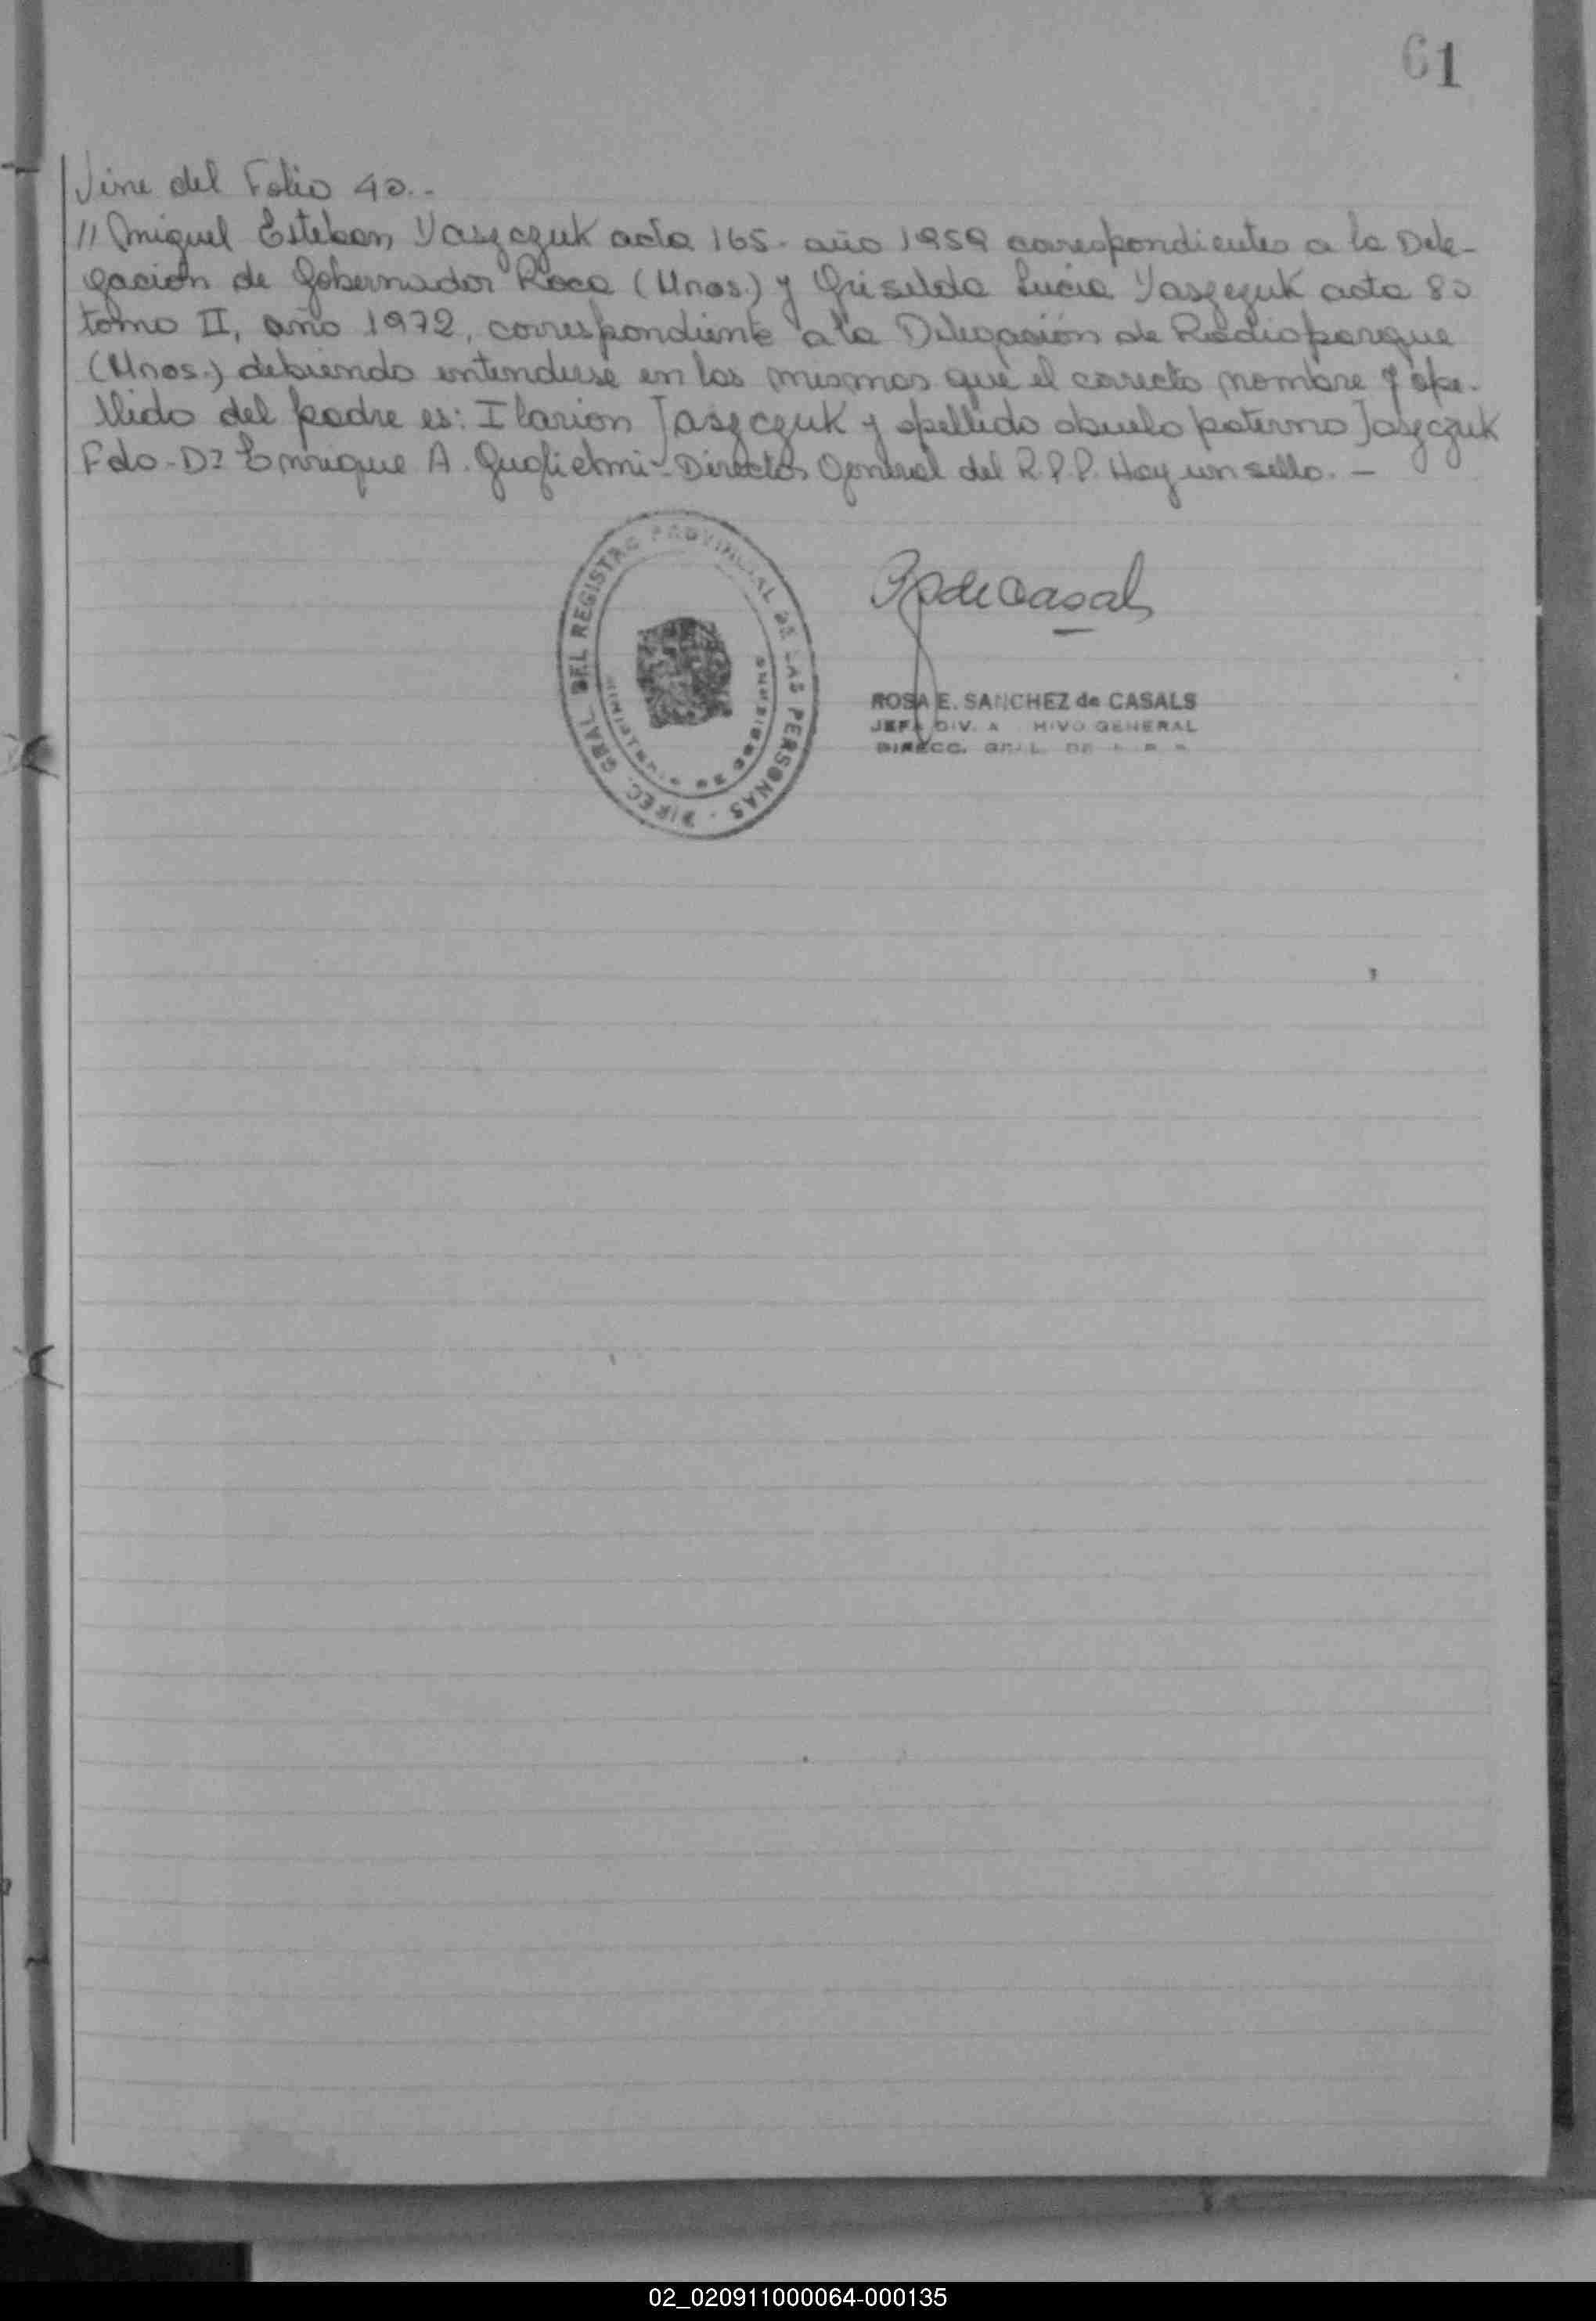 61
Vine del Folio 40.-
// Miguel Esteban Yaszczuk acta 165- año 1959 correspondientes a la Dele-
gación de Gobernador Roca (Mnes.) y Griselda Lucia Yaszczuk acta 80
tomo II, año 1972, correspondiente a la Delegación de Radioparque
(Mnes.) debiendo entenderse en las mismas que el correcto nombre y ape-
llido del padre es: Ilarion Jaszczuk y apellido abuelo paterno Jaszczuk
Fdo- Dr Enrique A. Guglielmi- Director General del R.P.P. Hay un sello. -
DIREC. GRAL. DEL REGISTRO PROVINCIAL DE LAS PERSONAS
de Casals
ROSA E. SANCHEZ de CASALS
JEFA DIV. A HIVO GENERAL
DIRECC. GRAL. DE
02_020911000064-000135